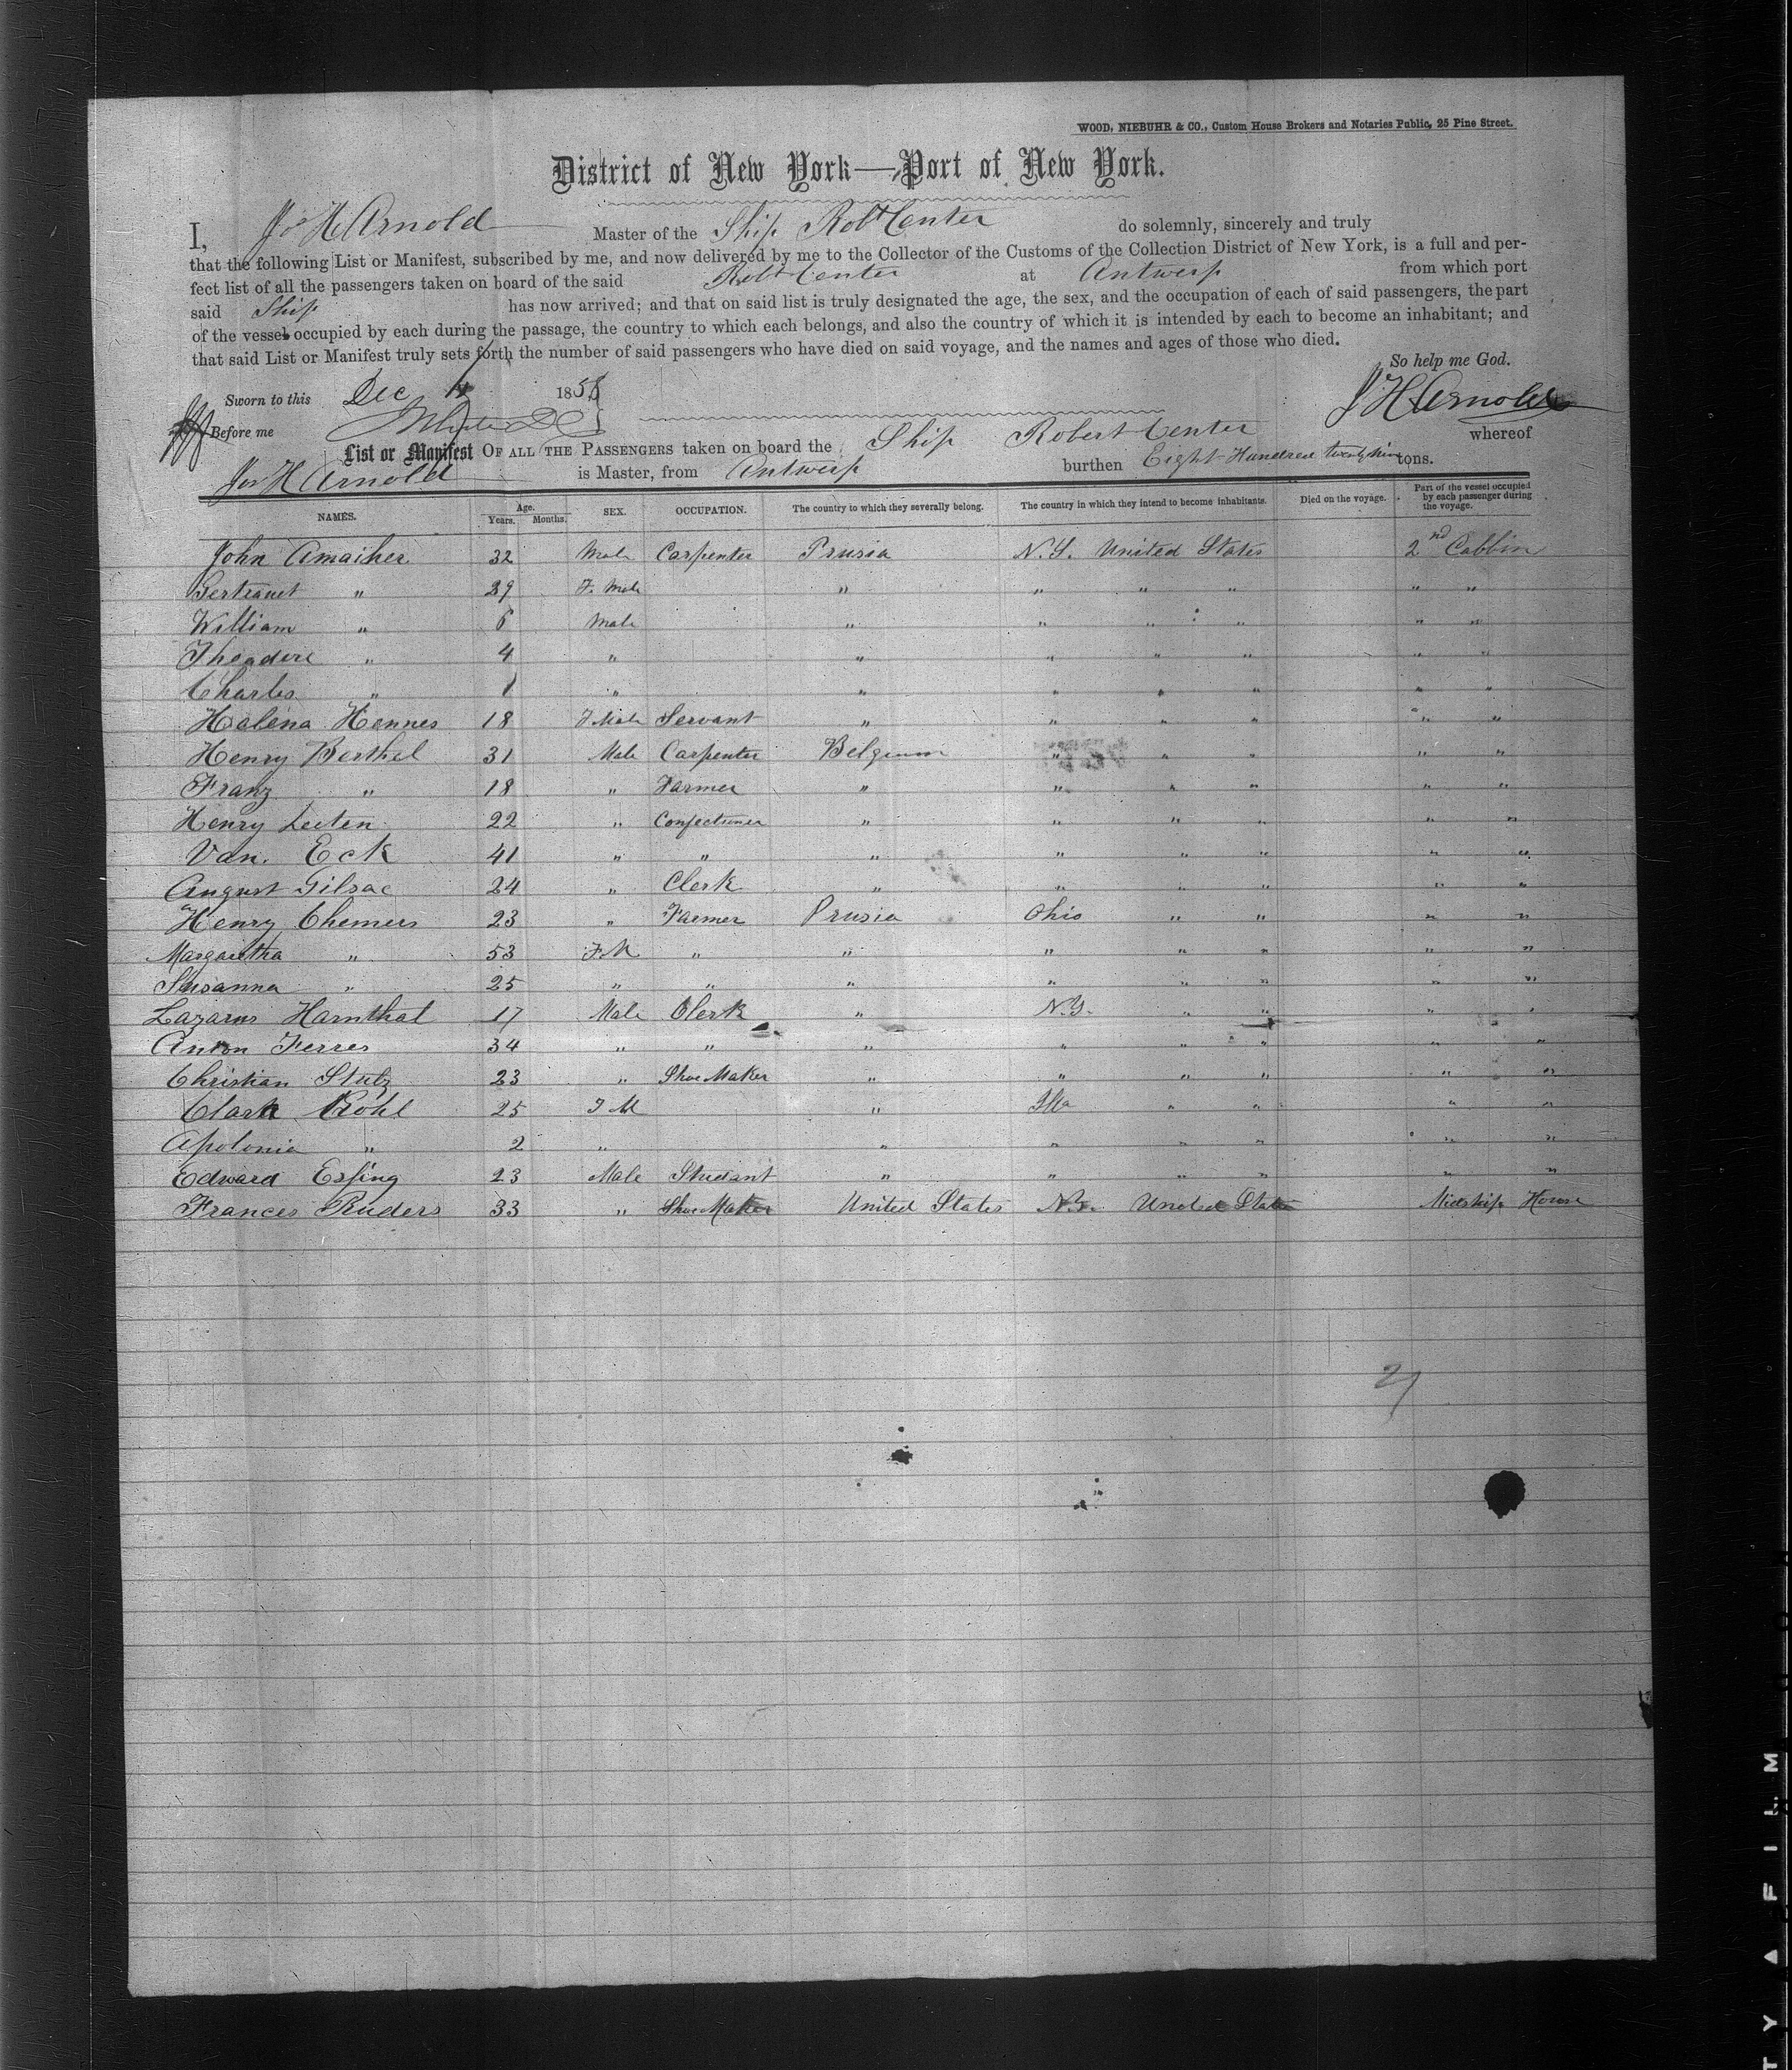 WOOD, NIEBUHR & CO., Custom House Brokers and Notaries Public, 25 Pine Street.
District of New York—Port of New York.
I, Jos H Arnold Master of the Ship Robt Center do solemnly, sincerely and truly
that the following List or Manifest, subscribed by me, and now delivered by me to the Collector of the Customs of the Collection District of New York, is a full and per-
fect list of all the passengers taken on board of the said Robt Center at Antwerp from which port
said Ship has now arrived; and that on said list is truly designated the age, the sex, and the occupation of each of said passengers, the part
of the vessel occupied by each during the passage, the country to which each belongs, and also the country of which it is intended by each to become an inhabitant; and
that said List or Manifest truly sets forth the number of said passengers who have died on said voyage, and the names and ages of those who died.
So help me God.
Sworn to this Dec 185
J H Arnold
Before me
List or Manifest OF ALL THE PASSENGERS taken on board the Ship Robert Center whereof
Jos H Arnold is Master, from Antwerp burthen Eight Hundred tons.
NAMES. Age. Years. Months. SEX. OCCUPATION. The country to which they severally belong. The country in which they intend to become inhabitants. Died on the voyage. Part of the vessel occupied by each passenger during the voyage.
John Amaiher 32 Male Carpenter Prusia N.Y. United States 2nd Cabbin
" 29 F. Male " " " " " "
William " 6 Male " " " " " "
Theadore " 4 " " " " " " "
Charles " 1 " " " " " " "
Helena Hennes 18 F Male Servant " " " " " "
Henry Berthel 31 Male Carpenter Belgium " " " " "
Franz " 18 " Farmer " " " " " "
Henry Leeten 22 " Confectioner " " " " " "
Van. Eck 41 " " " " " " " "
August Gilsac 24 " Clerk " " " " " "
Henry Chemers 23 " Farmer Prusia Ohio " " " "
Margaretha " 53 F. M " " " " " " "
Susanna " 25 " " " " " " " "
Lazarus Harnthal 17 Male Clerk " N.Y. " " " "
Anton Ferres 34 " " " " " " " "
Christian Stulz 23 " Shoe Maker " " " " " "
Clara Rohl 25 F M " Ills " " " "
Apolonia " 2 " " " " " " "
Edward Essing 23 Male Studant " " " " " "
Frances Ruders 33 " Shoe Maker United States N.Y. United States Midship House
21